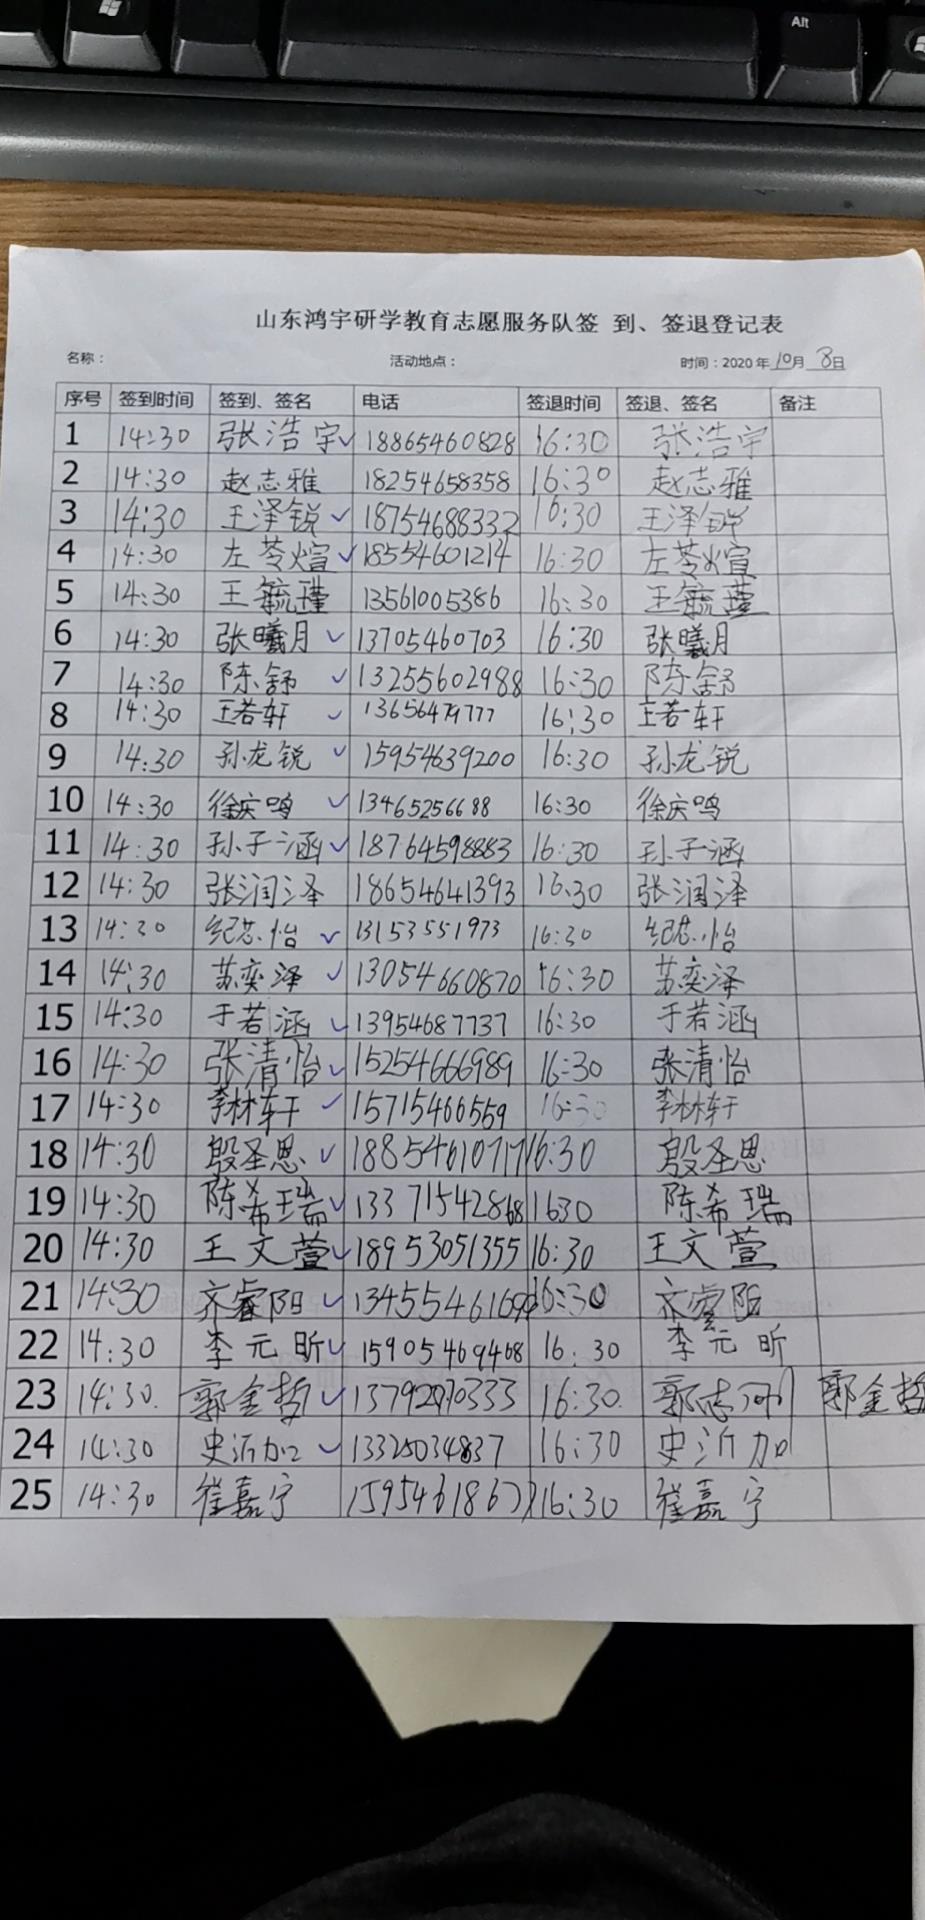 Alt
山东鸿宇研学教育志愿服务队签 到、签退登记表
名称： 活动地点： 时间：2020 年 10月 8日
序号 签到时间 签到、签名 电话 签退时间 签退、签名 备注
1 14:30 张浩宇✓ 18865460828 16:30 张浩宇
2 14:30 赵志雅 18254658358 16:30 赵志雅
3 14:30 王泽锐✓ 18754688332 16:30 王泽锐
4 14:30 左苓煊✓ 18554601214 16:30 左苓煊
5 14:30 王毓瑾 13561005386 16:30 王毓瑾
6 14:30 张曦月✓ 13705460703 16:30 张曦月
7 14:30 陈舒✓ 13255602988 16:30 陈舒
8 14:30 王若轩✓ 13656479777 16:30 王若轩
9 14:30 孙龙锐✓ 15954639200 16:30 孙龙锐
10 14:30 徐庆鸣✓ 13465256688 16:30 徐庆鸣
11 14:30 孙子涵✓ 18764598883 16:30 孙子涵
12 14:30 张润泽 18654641393 16:30 张润泽
13 14:30 纪芯怡✓ 13153551973 16:30 纪芯怡
14 14:30 苏奕泽✓ 13054660870 16:30 苏奕泽
15 14:30 于若涵✓ 13954687737 16:30 于若涵
16 14:30 张清怡✓ 15254666989 16:30 张清怡
17 14:30 李林轩✓ 15715466559 16:30 李林轩
18 14:30 殷圣恩✓ 18854610717 16:30 殷圣恩
19 14:30 陈希瑞✓ 13371542868 1630 陈希瑞
20 14:30 王文萱✓ 18953051355 16:30 王文萱
21 14:30 齐睿阳✓ 16:30 齐睿阳
22 14:30 李元昕✓ 15905469468 16:30 李元昕
23 14:30. 郭金哲✓ 16:30. 郭志刚 郭金哲
24 14:30 史沂加✓ 13325034837 16:30 史沂加
25 14:30 崔嘉宁 16:30 崔嘉宁